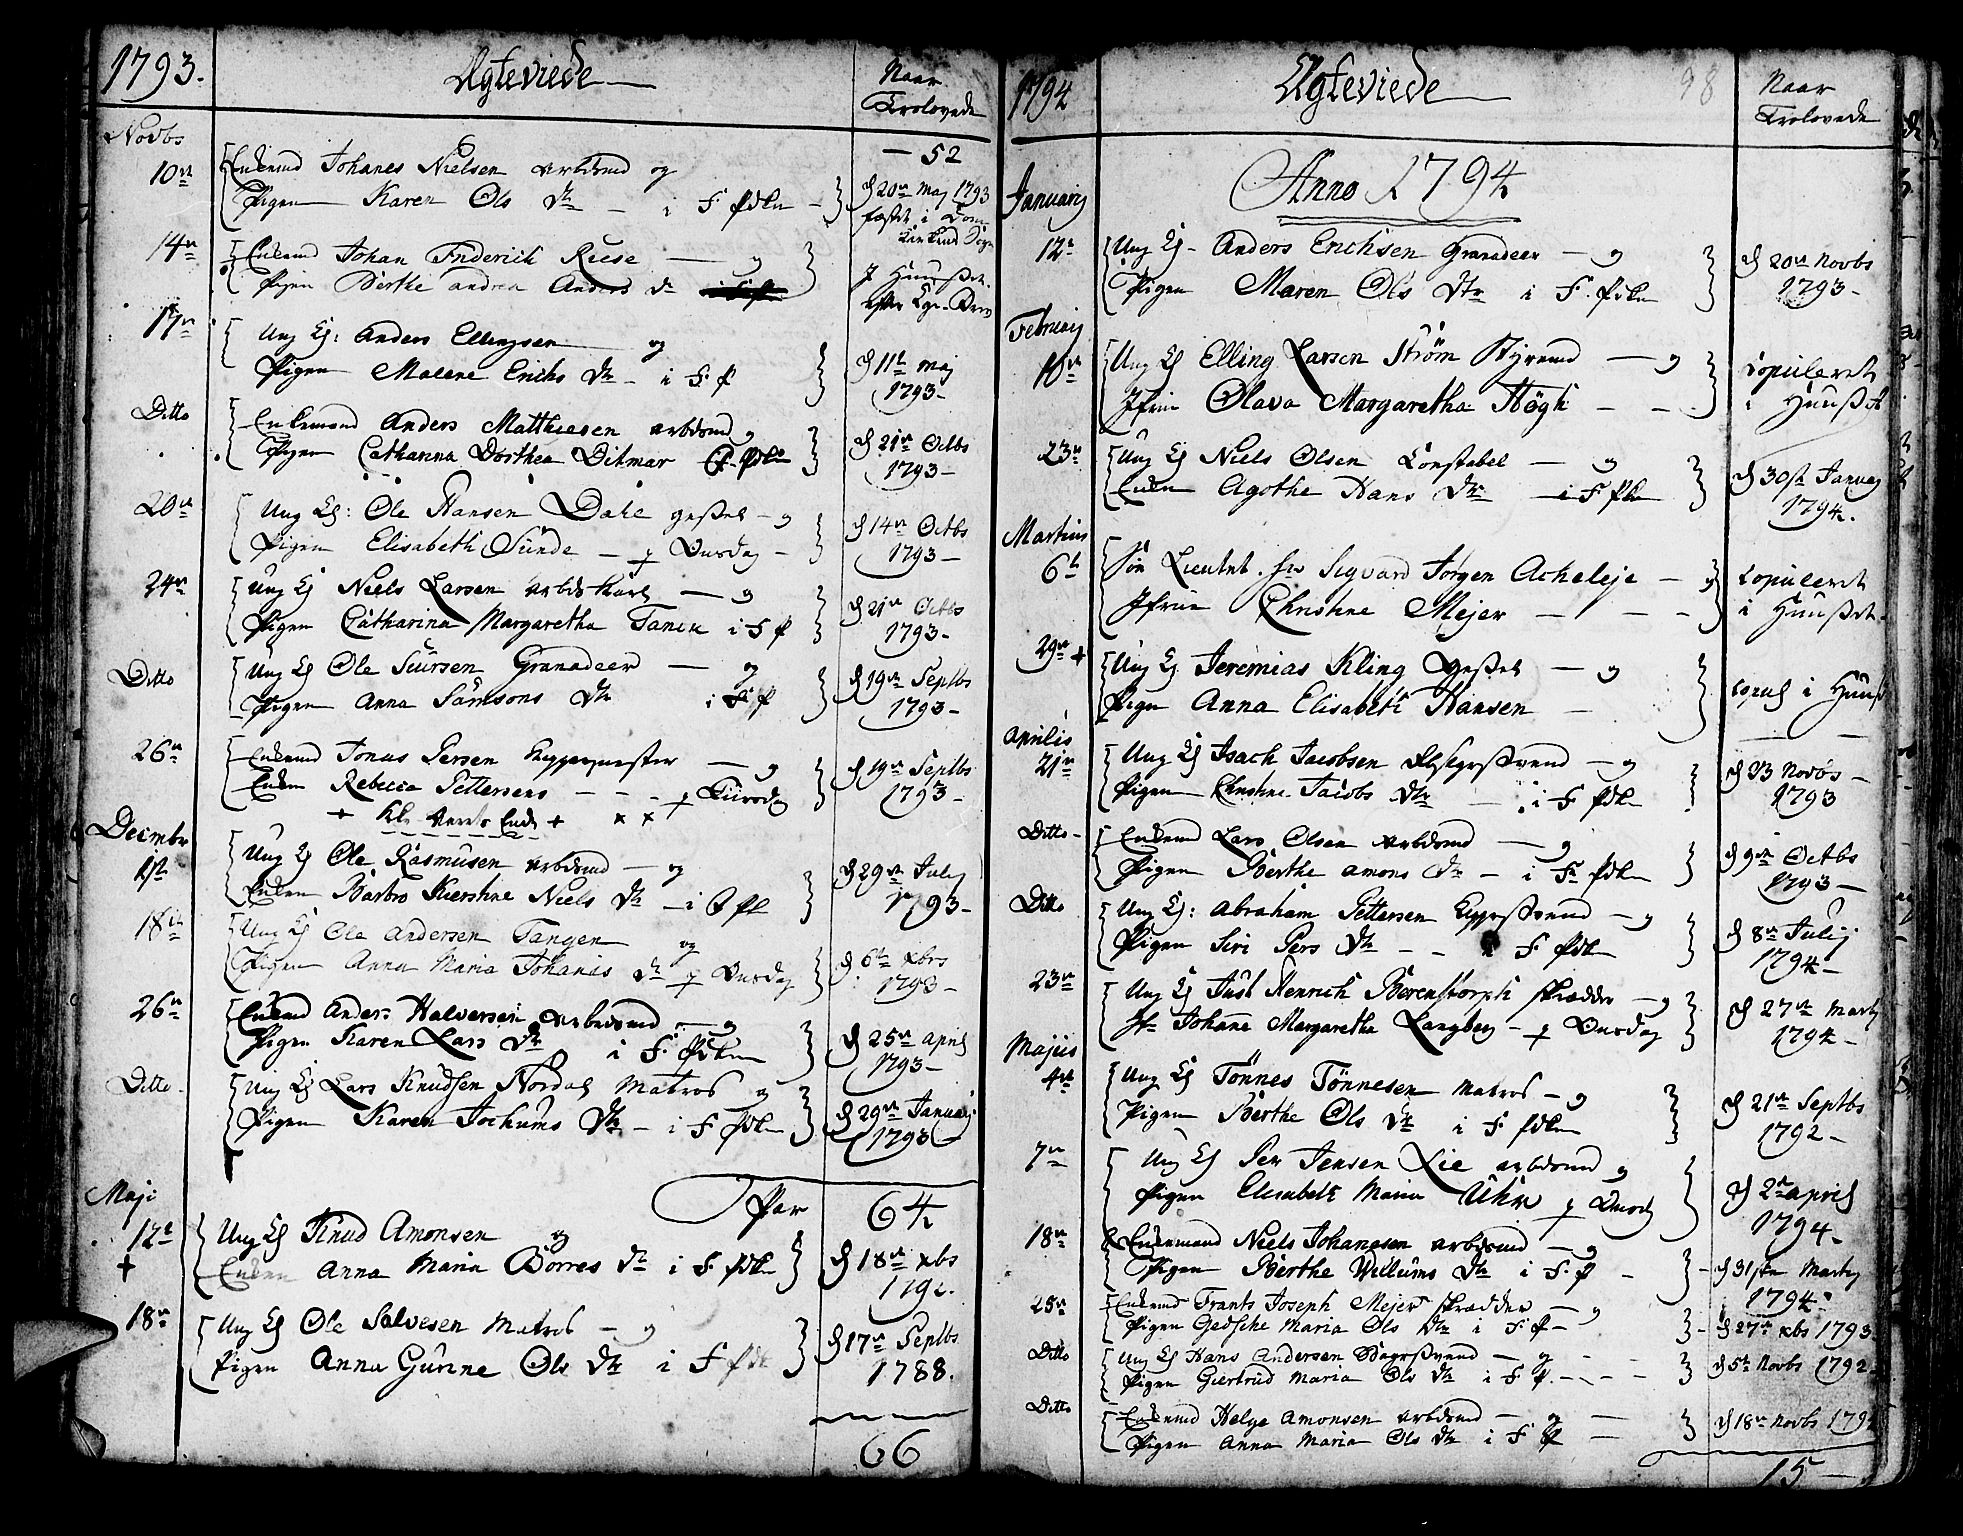 1793. Ægteviede Naar
Trolovede
Novbs — 52
10de Enkemd Johanes Nielsen arbdsmd og
Pigen Karen Ols Dtr — i F. Pdkn — d 20de Maj 1793
14de Enkemd Johan Friderich Riese — og
Pigen Berthe Andrea Anders Dr J Huusset.
17de Ung Ej: Anders Ellingsen og
Pigen Malene Erichs Dtr — i F. P d 11te Maj
1793 —
Ditto Enkemand Anders Matthiesen arbdsmd og
Pigen Catharina Dorthea Ditmar F. Pdkn d 21de Octbs
1793 —
20de Ung Ej: Ole Hansen Dahl gesxel — og
Pigen Elisabeth Sunde — p Onsdag — d 14de Octbs
1793 —
24de Ung Ej Niels Larsen arbdskarl — og
Pigen Catharina Margaretha Tanck i F P d 21de Octbs
1793 —
Ditto Ung Ej Ole Siursen Granadeer — og
Pigen Anna Samsons Dtr i F. P d 19de Septbs
1793 —
26de Enkemd Jonas Persen — og
Enken Rebecca Pettersens — p Tiirsdg d 19de Septbs
1793 —
Decimbr
1ste Ung Ej Ole Rasmusen arbdsmd — og
Enken Barbro Kierstine Niels Dtr — i F Pk d 29de Julij
1793 —
18de Ung Ej Ole Andersen Tangen og
Pigen Anna Maria Johanis Dtr p Onsdag d 6te xbrs
1793 —
26de Enkemd Anders Halversen arbedsmd — og
Pigen Karen Lars Dtr i F. Pdkn d 25de April
1793 —
Ditto — Ung Ej Lars Knudsen Nordal Matros og
Pigen Karen Jochums Dtr — i F Pdkn d 29de Januarij
1793 —
Par 64
Maji
12te Ung Ej Knud Amonsen og
+ Enken Anna Maria Borres Dtr i F. Pdkn d 18de xbs
1792.
18de Ung Ej Ole Salvesen Matros — og
Pigen Anna Gurine Ols Dtr i F Pdk d 17de Septbs
1788.
66
1794 Ægteviede 98 Naar
Trolovede
Anno 1794
Januarij
12te Ung Ej — Anders Erichsen Granadeer — og
Pigen Maren Ols Dtr i F. Pdkn d 20de Novbs
1793 —
Februarij
10de Ung Ej Elling Larsen Strøm Styrmd — og
Jfrue Olava Margaretha Høgh — — Copuleret
i Huusset
23de Ung Ej Niels Olsen Constabel — og
Enken Agothe Hans Dtr — i F Pkn d 30te Januarij
1794.
Martius
6te Sr. Lieutnt. Hr Sigvard Jørgen Acheleje — og
Jfrue Christine Mejer — — — Copuleret
i Huusset.
29de + Ung Ej Jeremias Kling Gesxel — og
Pigen Anna Elisabeth Hansen — Copul i Huuss
Aprilis
21de Ung Ej Isach Jacobsen — og
Pigen Christine Jacobs Dtr — i F Pdkn d 23 Novbs —
1793
Ditto — Enkemd Lars Olsen arbdsmd — og
Pigen Berthe Amons Dtr — i F. Pdkn d 9de Octbs
1793 —
Ditto Ung Ej: Abraham Pettersen — og
Pigen Siri Pers Dtr — — i F Pdkn d 8de Julij
1794 —
23de Ung Ej Just Henrich Berenstorph Skrædder — og
Jfr Johanne Margaretha Langberg — p Onsdag d 27de Martij
1794 —
Majus
4de Ung Ej Tönnes Tönnesen Matros — og
Pigen Berthe Ols Dtr i F. Pdkn d 21de Septbs
1792 —
7de Ung Ej Per Jensen Lie arbdsmd og
Pigen Elisabeth Maria Uhr p Onsdg d 2de April
1794 —
18de Enkemand Niels Johanesen arbdsmd — og
Pigen Berthe Willums Dtr i F. P — d 31ste Martij
1794 —
25de Enkemd Frants Joseph Mejer Skrædder — og
Pigen Gedsche Maria Ols Dtr i F. P — d 27de xbs 1793
Ditto Ung Ej Hans Andersen Bagersvend — og
Pigen Giertrud Maria Ols Dtr i F. P. — — — d 5te Novbs 1792
Ditto Enkemd Helge Amonsen arbdsmd — og —
Pigen Anna Maria Ols Dtr i F P — d 18de Novbs 179
15 —